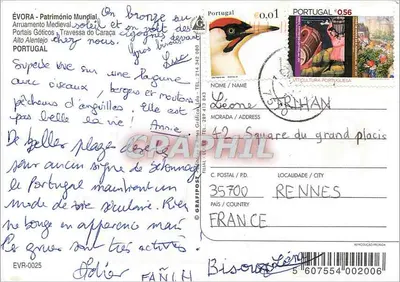 ÉVORA - Património Mundial
Arruamento Medieval
Portais Góticos - Travessa do Caraça
Alto Alentejo
PORTUGAL
On bronze au
soleil et on voit des
cigognes devant
chez nous.
Gros bisous
Luc
Superbe vue sur une lagune
avec oiseaux, bergers et moutons,
pêcheurs d'anguilles. Elle est
pas belle la vie! Annie
De belles plages désertes
sans aucun signe de bétonnage
le Portugal maintient un
mode de vie séculaire. Rien
ne bouge en apparence mais
les grues sont très actives
Didier
EVR-0025
PORTUGAL
€0,01
PORTUGAL € 0,56
CULTURA PORTUGUESA
NOME / NAME
Léone
MORADA / ADDRESS
42 Square du grand placis
C. POSTAL / P.CODE
LOCALIDADE
35700 RENNES
PAÍS / COUNTRY
FRANCE
Bisous
5 607554 002006
© GRAFIPOST
GRAPHIL